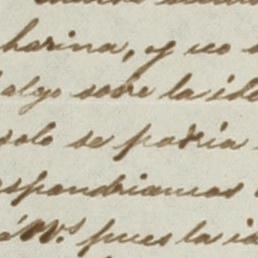 harina, y no
algo sobre la id
solo se podria
spondriamos
á W.s pues la i